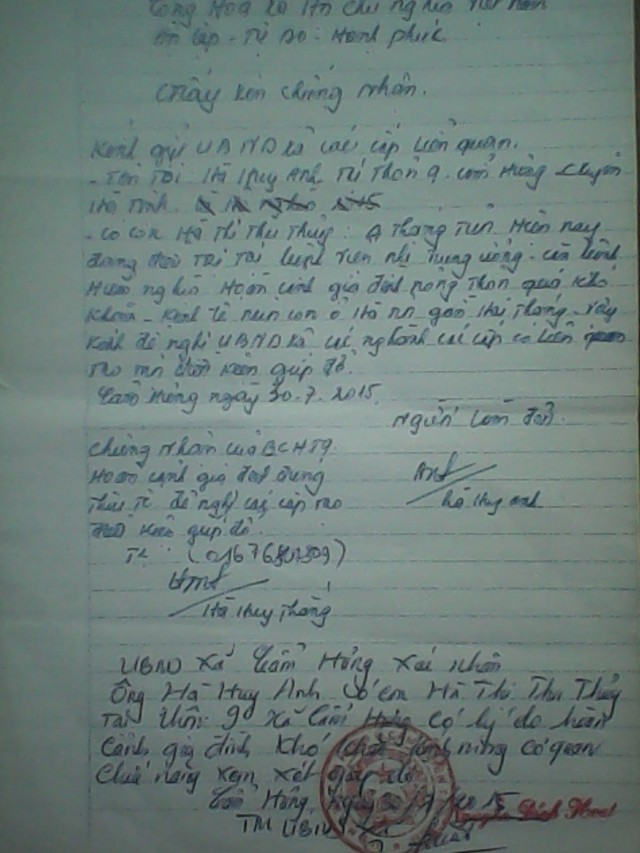 Cộng Hoà Xã Hội Chủ nghĩa Việt Nam
Độc lập - Tự Do - Hạnh phúc
Giấy xác chứng nhân.
Kính gửi UBND xã các cấp liên quan.
- Tên Tôi Hà Huy Anh Tại Thôn 9 - cẩm Hưng - Cẩm Xuyên
Hà Tĩnh.
- Có con Hà Thị Thu Thủy: 9 tháng Tuổi Hiện nay
đang điều Trị Tại bệnh viện nhi Trung ương - căn bệnh
Hiểm nghèo Hoàn cảnh gia đình nông Thôn quá khó
khăn - Kinh tế nuôi con ở Hà nội gần Hai Tháng - Vậy
Kính đề nghị UBND xã các nghành các cấp có liên quan
Tạo mọi điều kiện giúp đỡ.
Cẩm Hưng ngày 30-7-2015.
Người Làm đơn.
Chứng nhận của BCHT9.
Hoàn cảnh gia đình đúng
Thực Tế đề nghị các cấp tạo
điều kiện giúp đỡ.
Hà Huy Anh
Hà Huy Thắng
UBND Xã Cẩm Hưng Xác nhận
Ông Hà Huy Anh có con Hà Thị Thu Thủy
Tại thôn 9 Xã Cẩm Hưng có lý do hoàn
Cảnh gia đình khó khăn kính mong cơ quan
Chức năng xem xét giúp đỡ
Cẩm Hưng, ngày
TM UBND